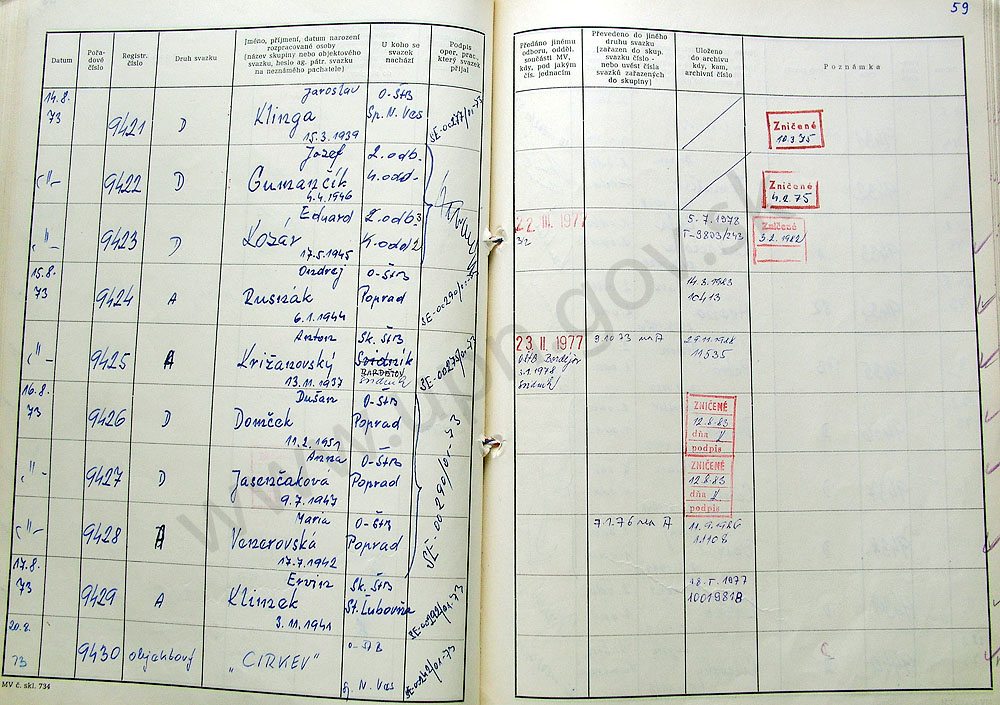 59
Datum
Pořadové číslo
Registr. číslo
Druh svazku
Jméno, příjmení, datum narození
rozpracované osoby
(název skupiny nebo objektového
svazku, heslo ag. pátr. svazku
na neznámého pachatele)
U koho se
svazek
nachází
Podpis
oper. prac.,
který svazek
přijal
Předáno jinému
odboru, odděl.
součásti MV,
kdy, pod jakým
čís. jednacím
Převedeno do jiného
druhu svazku
(zařazen do skup.
svazku číslo -
nebo uvést čísla
svazků zařazených
do skupiny)
Uloženo
do archivu
kdy, kam,
archivní číslo
Poznámka
14.8. Jaroslav O-ŠtB
73 9421 D Klinga Sp. N. Ves
15.3.1939
Zničené
10.3.75
Jozef 2. odb.
-"- 9422 D Gumančík 4. odd.
4.4.1946
Zničené
4.2.75
Eduard 2. odb.
-"- 9423 D Kozár 4. odd.
17.5.1945
22. III. 1977
3/2
5.7.1978
T-9803/243
Zničené
3.2.1982
15.8. Ondrej O-ŠtB
73 9424 A Rusnák Poprad
6.1.1944
SE-00290/01-73
14.3.1983
10413
Anton Sk. ŠtB
-"- 9425 A Križanovský Svidník
BARDEJOV
13.11.1937 Svidník
SE-00275/01-73
23. II. 1977
Bardejov
3.1.1978
Svidník
29.11.1988
11535
16.8. Dušan O-ŠtB
73 9426 D Domček Poprad
11.2.1951
ZNIČENÉ
12.8.83
dňa
podpis
Anna O-ŠtB
-"- 9427 D Jasenčáková Poprad
9.7.1947
SE-00290/01-73
ZNIČENÉ
12.8.83
dňa
podpis
Maria O-ŠtB
-"- 9428 A Venerovská Poprad
17.7.1942
7.1.76 na A
11.9.1986
11108
17.8. Ervin Sk. ŠtB
73 9429 A Klimek St. Ľubovňa
3.11.1941
SE-00292/01-73
18.I.1977
1001981B
20.8. O-ŠtB
73 9430 objektový „CIRKEV"
Sp. N. Ves
SE-00242/01-73
MV č. skl. 734
www.upn.gov.sk